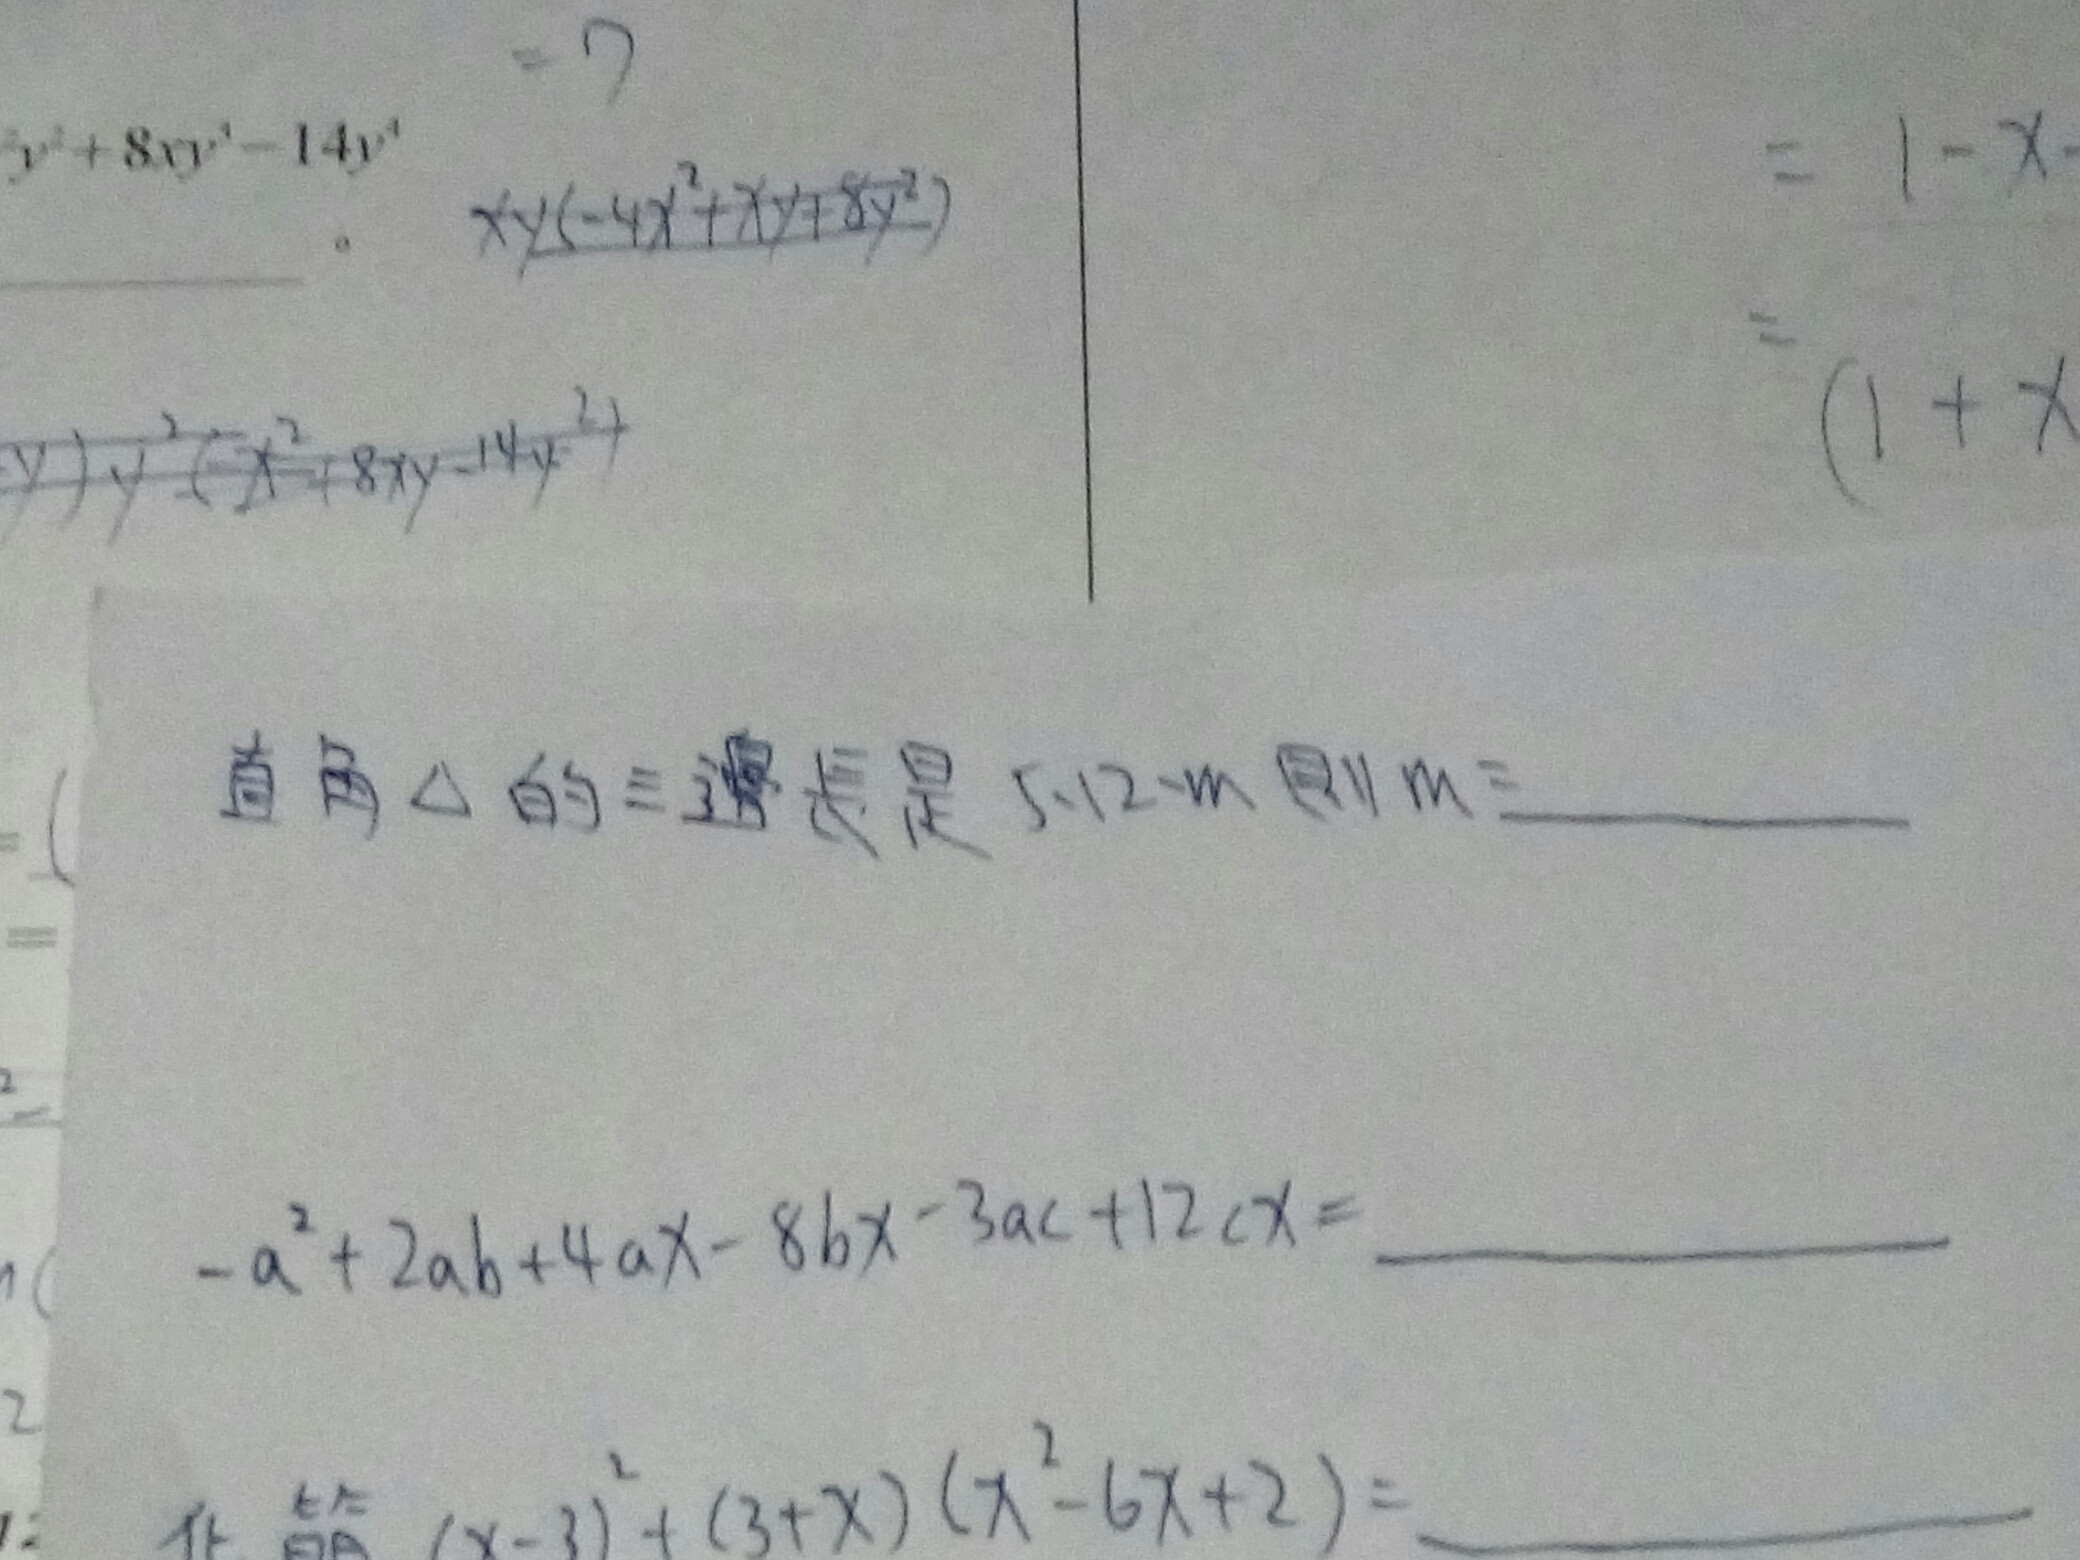 =7
y²+8xy³-14y⁴
xy(-4x²+xy+8y²)
= 1-x-
=
(1+x
y)y²(x²+8xy-14y²)
直角△的三邊長是 5.12.m 則 m=
=(
=
-a²+2ab+4ax-8bx-3ac+12cx=
2
化簡 (x-3)²+(3+x)(x²-6x+2)=